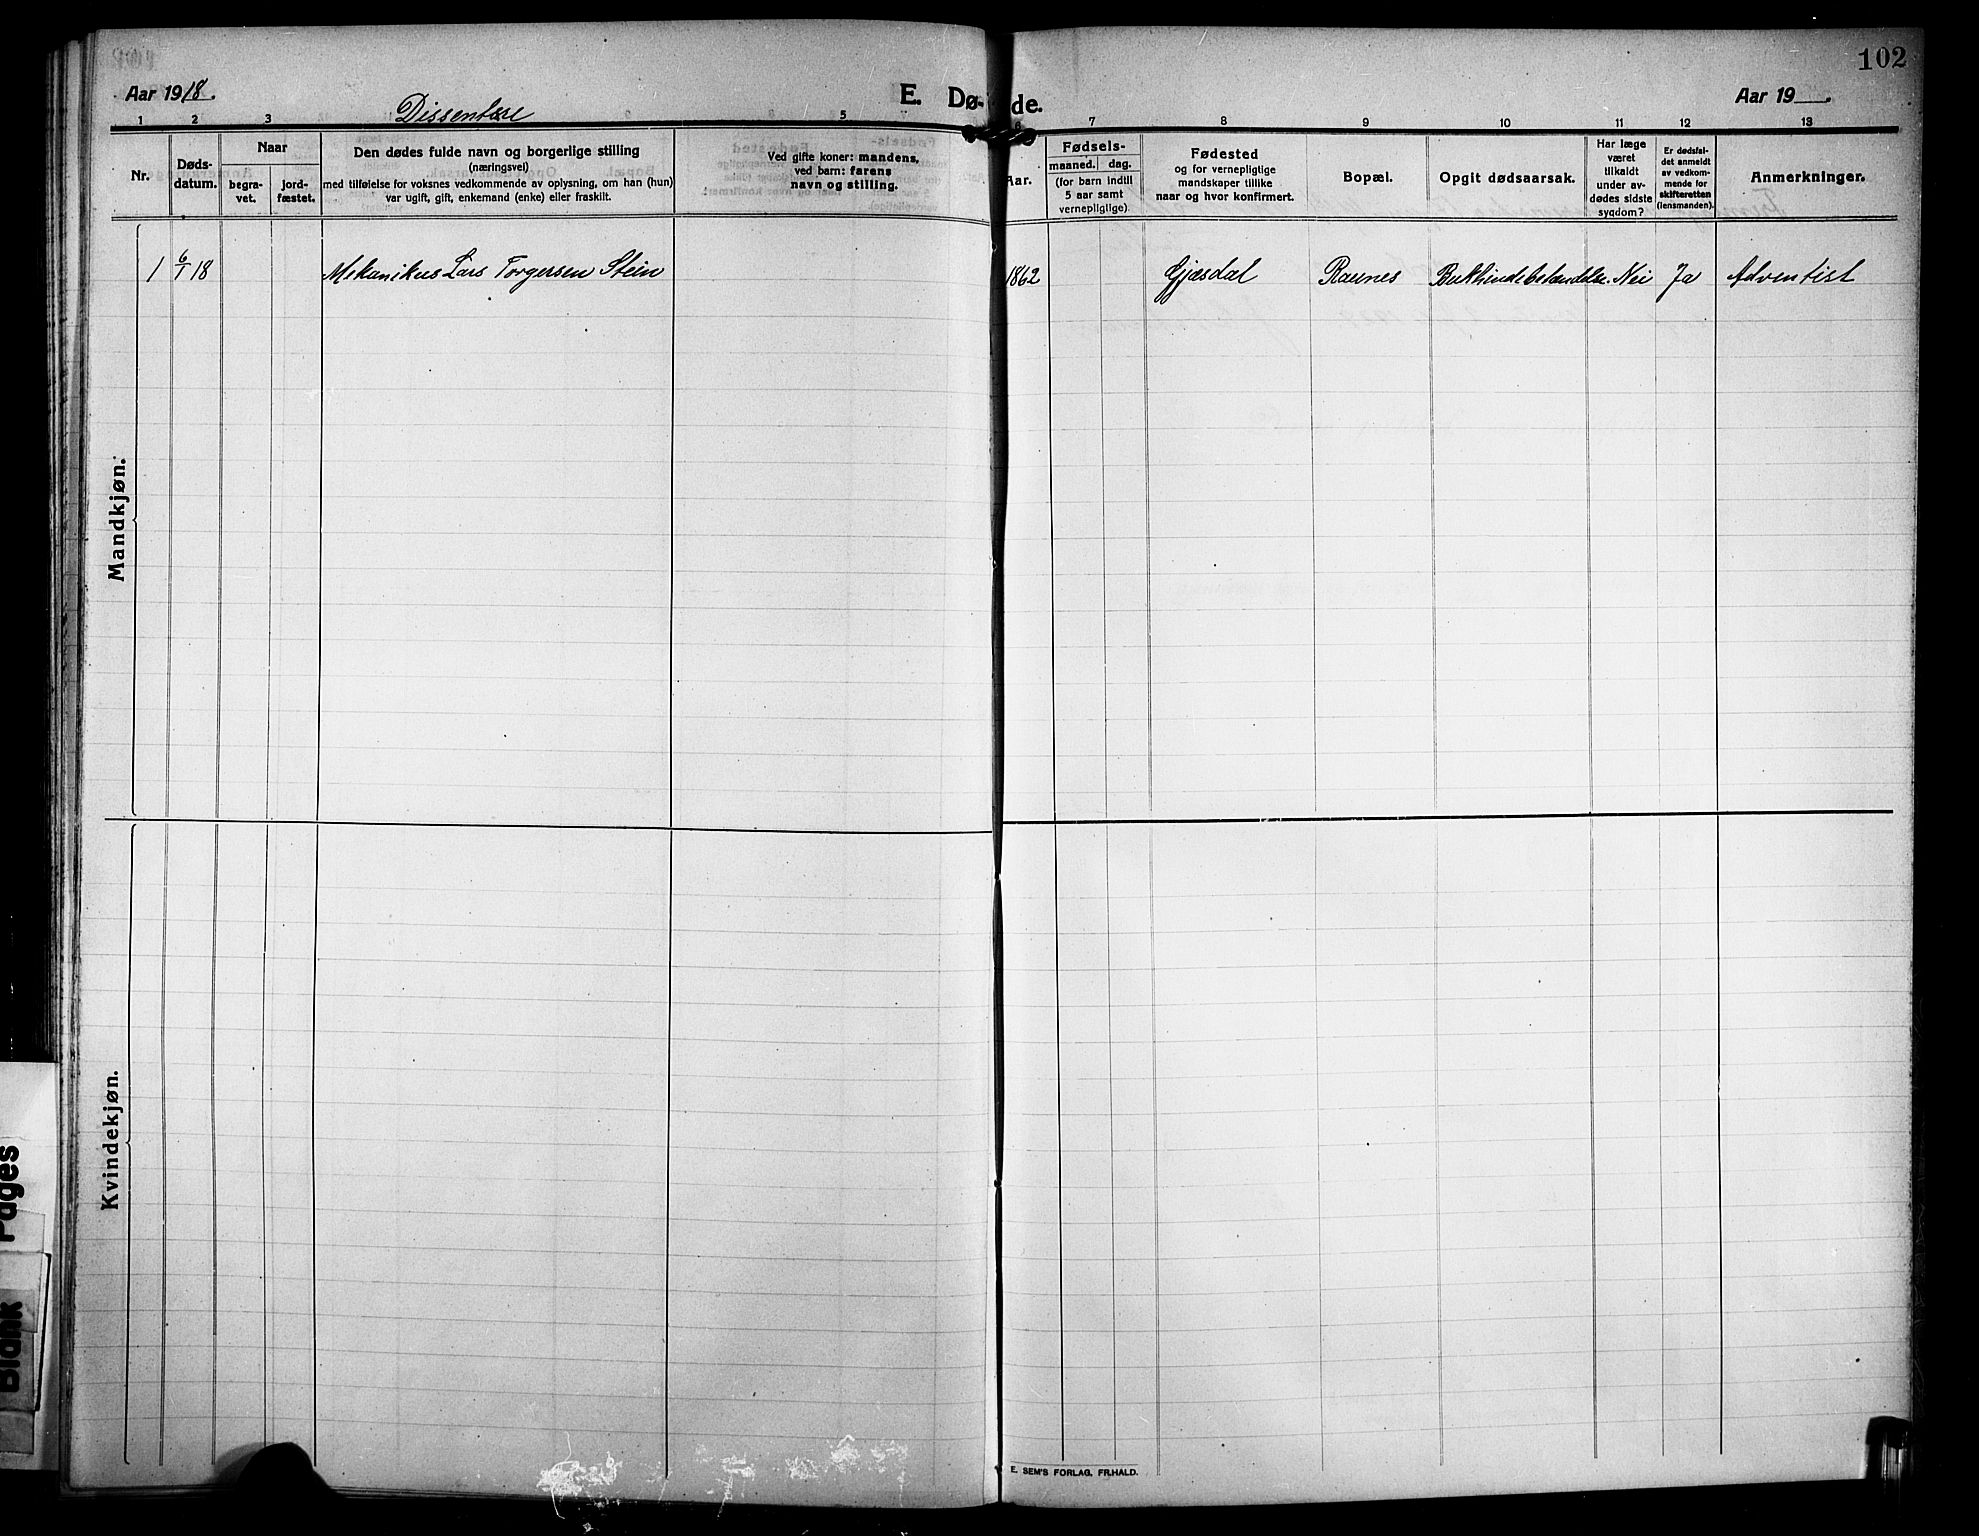 102
Aar 1918.
Dissentere
E. Dø-
de.
Aar 19
1 2 3 5 6 7 8 9 10 11 12 13
Nr.
Døds-
datum.
Naar
begra-
vet.
jord-
fæstet.
Den dødes fulde navn og borgerlige stilling
(næringsvei)
med tilføielse for voksnes vedkommende av oplysning, om han (hun)
var ugift, gift, enkemand (enke) eller fraskilt.
Ved gifte koner: mandens,
ved barn: farens
navn og stilling.
Aar.
Fødsels-
maaned. dag.
(for barn indtil
5 aar samt
vernepligtige).
Fødested
og for vernepligtige
mandskaper tillike
naar og hvor konfirmert.
Bopæl.
Opgit dødsaarsak.
Har læge
været
tilkaldt
under av-
dødes sidste
sygdom?
Er dødsfal-
det anmeldt
av vedkom-
mende for
skifteretten
(lensmanden).
Anmerkninger.
1 6/1 18 Mekanikus Lars Torgersen Stein 1862 Gjæsdal Raunes Nei Ja Adventist
Mandkjøn.
Kvindekjøn.
E. SEM'S FORLAG, FR.HALD.
Pages
Blank